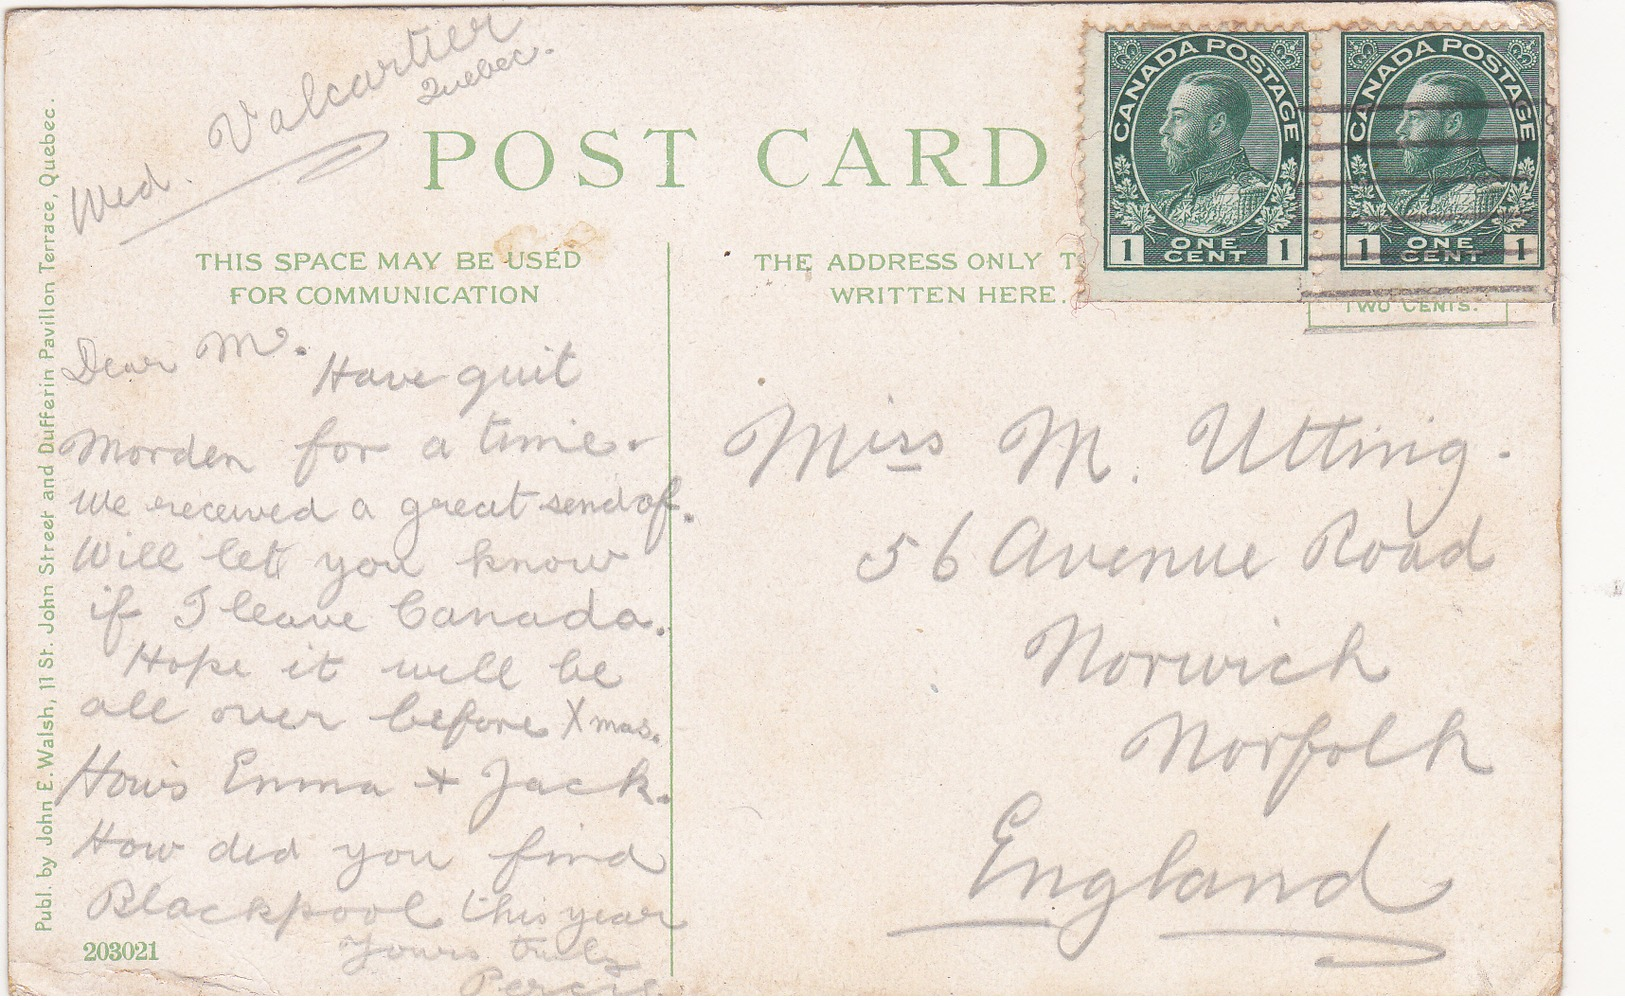 Wed. Valcartier
Quebec.
POST CARD
THIS SPACE MAY BE USED
FOR COMMUNICATION
THE ADDRESS ONLY T
WRITTEN HERE.
CANADA POSTAGE
1 ONE CENT 1
CANADA POSTAGE
1 ONE CENT 1
TWO CENTS.
Dear M.
Have quit
Morden for a time.
We received a great send of.
Will let you know
if I leave Canada.
Hope it will be
all over before Xmas.
How's Emma + Jack.
How did you find
Blackpool this year
Yours truly
Percie
Miss M. Utting.
56 Avenue Road
Norwich
Norfolk
England
Publ. by John E. Walsh, 11 St. John Street and Dufferin Pavillon Terrace, Quebec.
203021